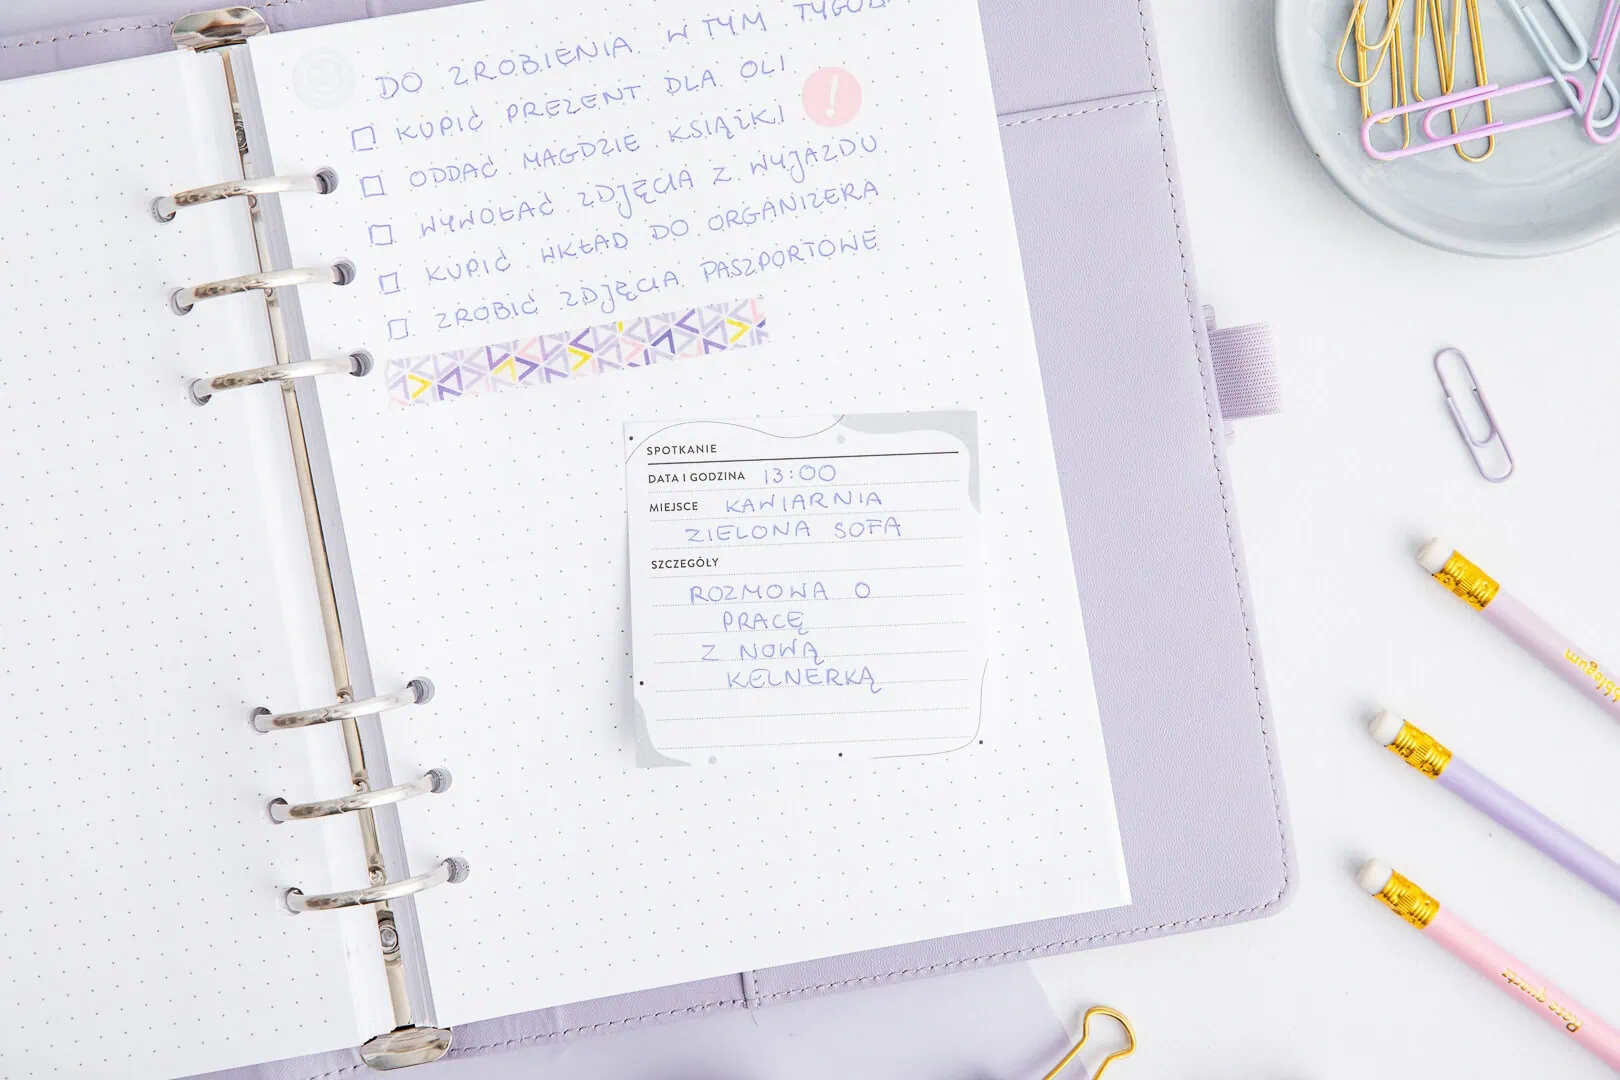 DO ZROBIENIA W TYM
☐ KUPIĆ PREZENT DLA OLI
☐ ODDAĆ MAGDZIE KSIĄŻKI !
☐ WYWOŁAĆ ZDJĘCIA Z WYJAZDU
☐ KUPIĆ WKŁAD DO ORGANIZERA
☐ ZROBIĆ ZDJĘCIA PASZPORTOWE
SPOTKANIE
DATA I GODZINA 13:00
MIEJSCE KAWIARNIA
ZIELONA SOFA
SZCZEGÓŁY
ROZMOWA O
PRACĘ
Z NOWĄ
KELNERKĄ